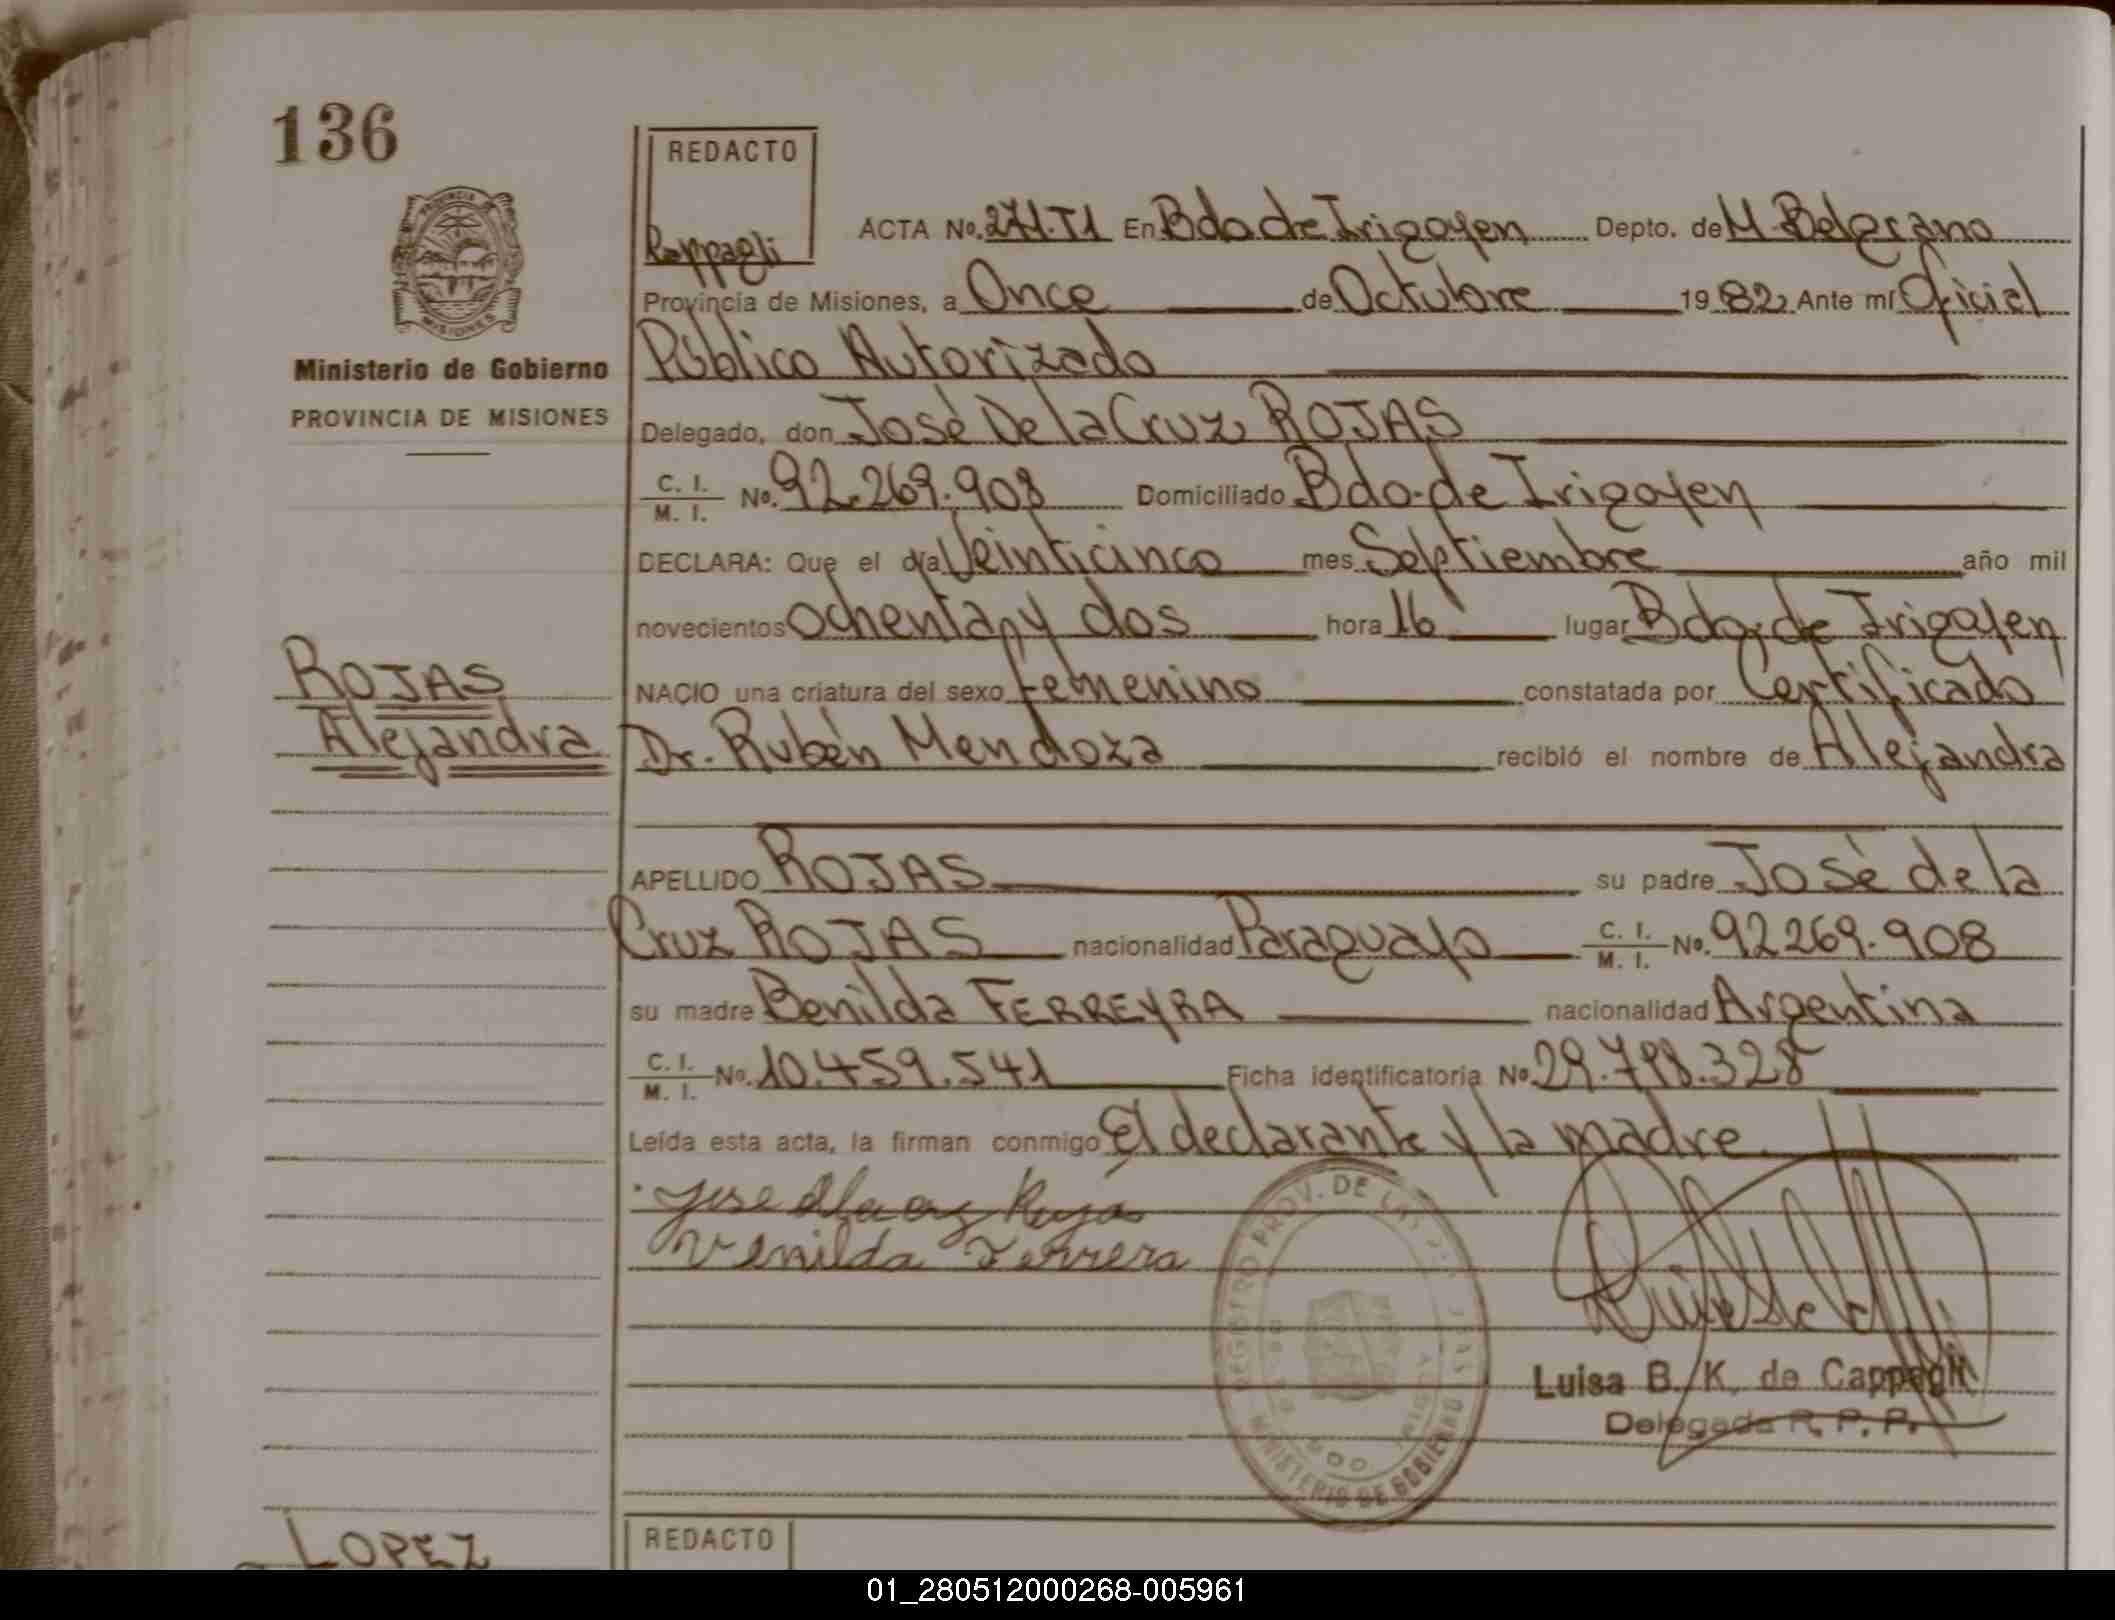 136
REDACTO
Cappagli
ACTA No. 271.T1 En Bdo de Irigoyen Depto. de M. Belgrano
Provincia de Misiones, a Once de Octubre 1982 Ante mí Oficial
Público Autorizado
Ministerio de Gobierno
PROVINCIA DE MISIONES
Delegado, don José De la Cruz ROJAS
C. I.
M. I. No. 92.269.908 Domiciliado Bdo. de Irigoyen
DECLARA: Que el día Veinticinco mes Septiembre año mil
novecientos ochenta y dos hora 16 lugar Bdo. de Irigoyen
ROJAS
Alejandra
NACIO una criatura del sexo femenino constatada por Certificado
Dr. Rubén Mendoza recibió el nombre de Alejandra
APELLIDO ROJAS su padre José de la
Cruz ROJAS nacionalidad Paraguayo C. I. M. I. No. 92269.908
su madre Benilda FERREYRA nacionalidad Argentina
C. I.
M. I. No. 10.459.541 Ficha identificatoria No. 29.798.328
Leída esta acta, la firman conmigo El declarante y la madre
Venilda Ferrera
REGISTRO PROV. DE LAS
MINISTERIO DE GOBIERNO
Luisa B. K. de Cappagli
Delegada R. P. P.
LOPEZ
REDACTO
01_280512000268-005961